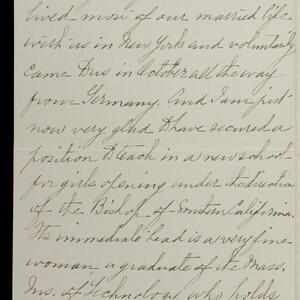 lived most of our married life
with us in New York and voluntarily
came thus in October all the way
from Germany. And I am just
now very glad to have secured a
position to teach in a new school
for girls opening under the direction
of the Bishop of Southern California.
Its immediate head is a very fine
woman, a graduate of the Mass.
Ins. of Technology who holds